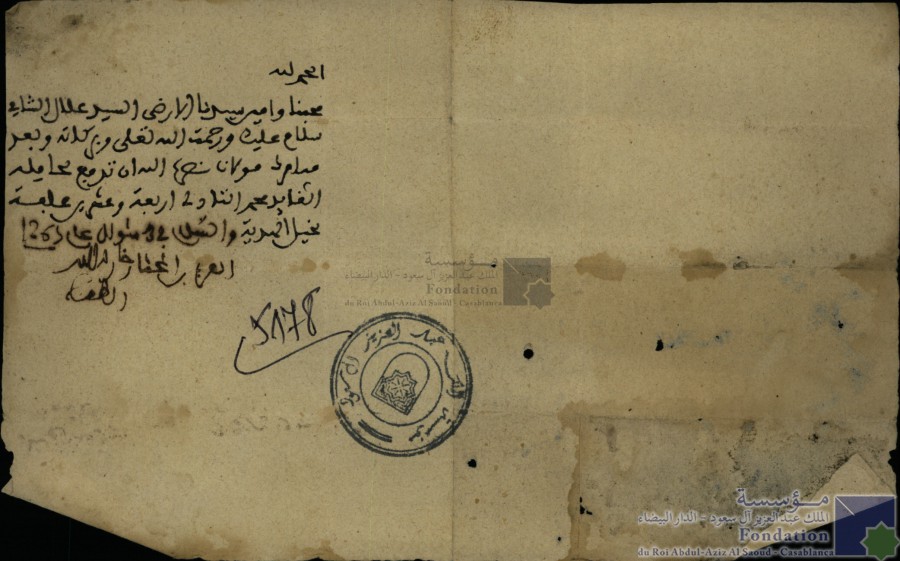 الحمد لله
محبنا وامين سيدنا الارضى السيد علال الشامي
سلام عليك ورحمت الله تعلى وبركاته وبعد
فيامرك مولانا نصره الله ان تدفع لحامله
القايد محمد اربعة وعشرين علفة
لخيل الهدية والسلام في شوال عام 1263
العربي بن المختار خار الله له
الطف به
5178
عبد العزيز آل سعود
مؤسسة الملك
مؤسسة
الملك عبد العزيز آل سعود - الدار البيضاء
Fondation
du Roi Abdul-Aziz Al Saoud - Casablanca
مؤسسة
الملك عبد العزيز آل سعود - الدار البيضاء
Fondation
du Roi Abdul-Aziz Al Saoud - Casablanca